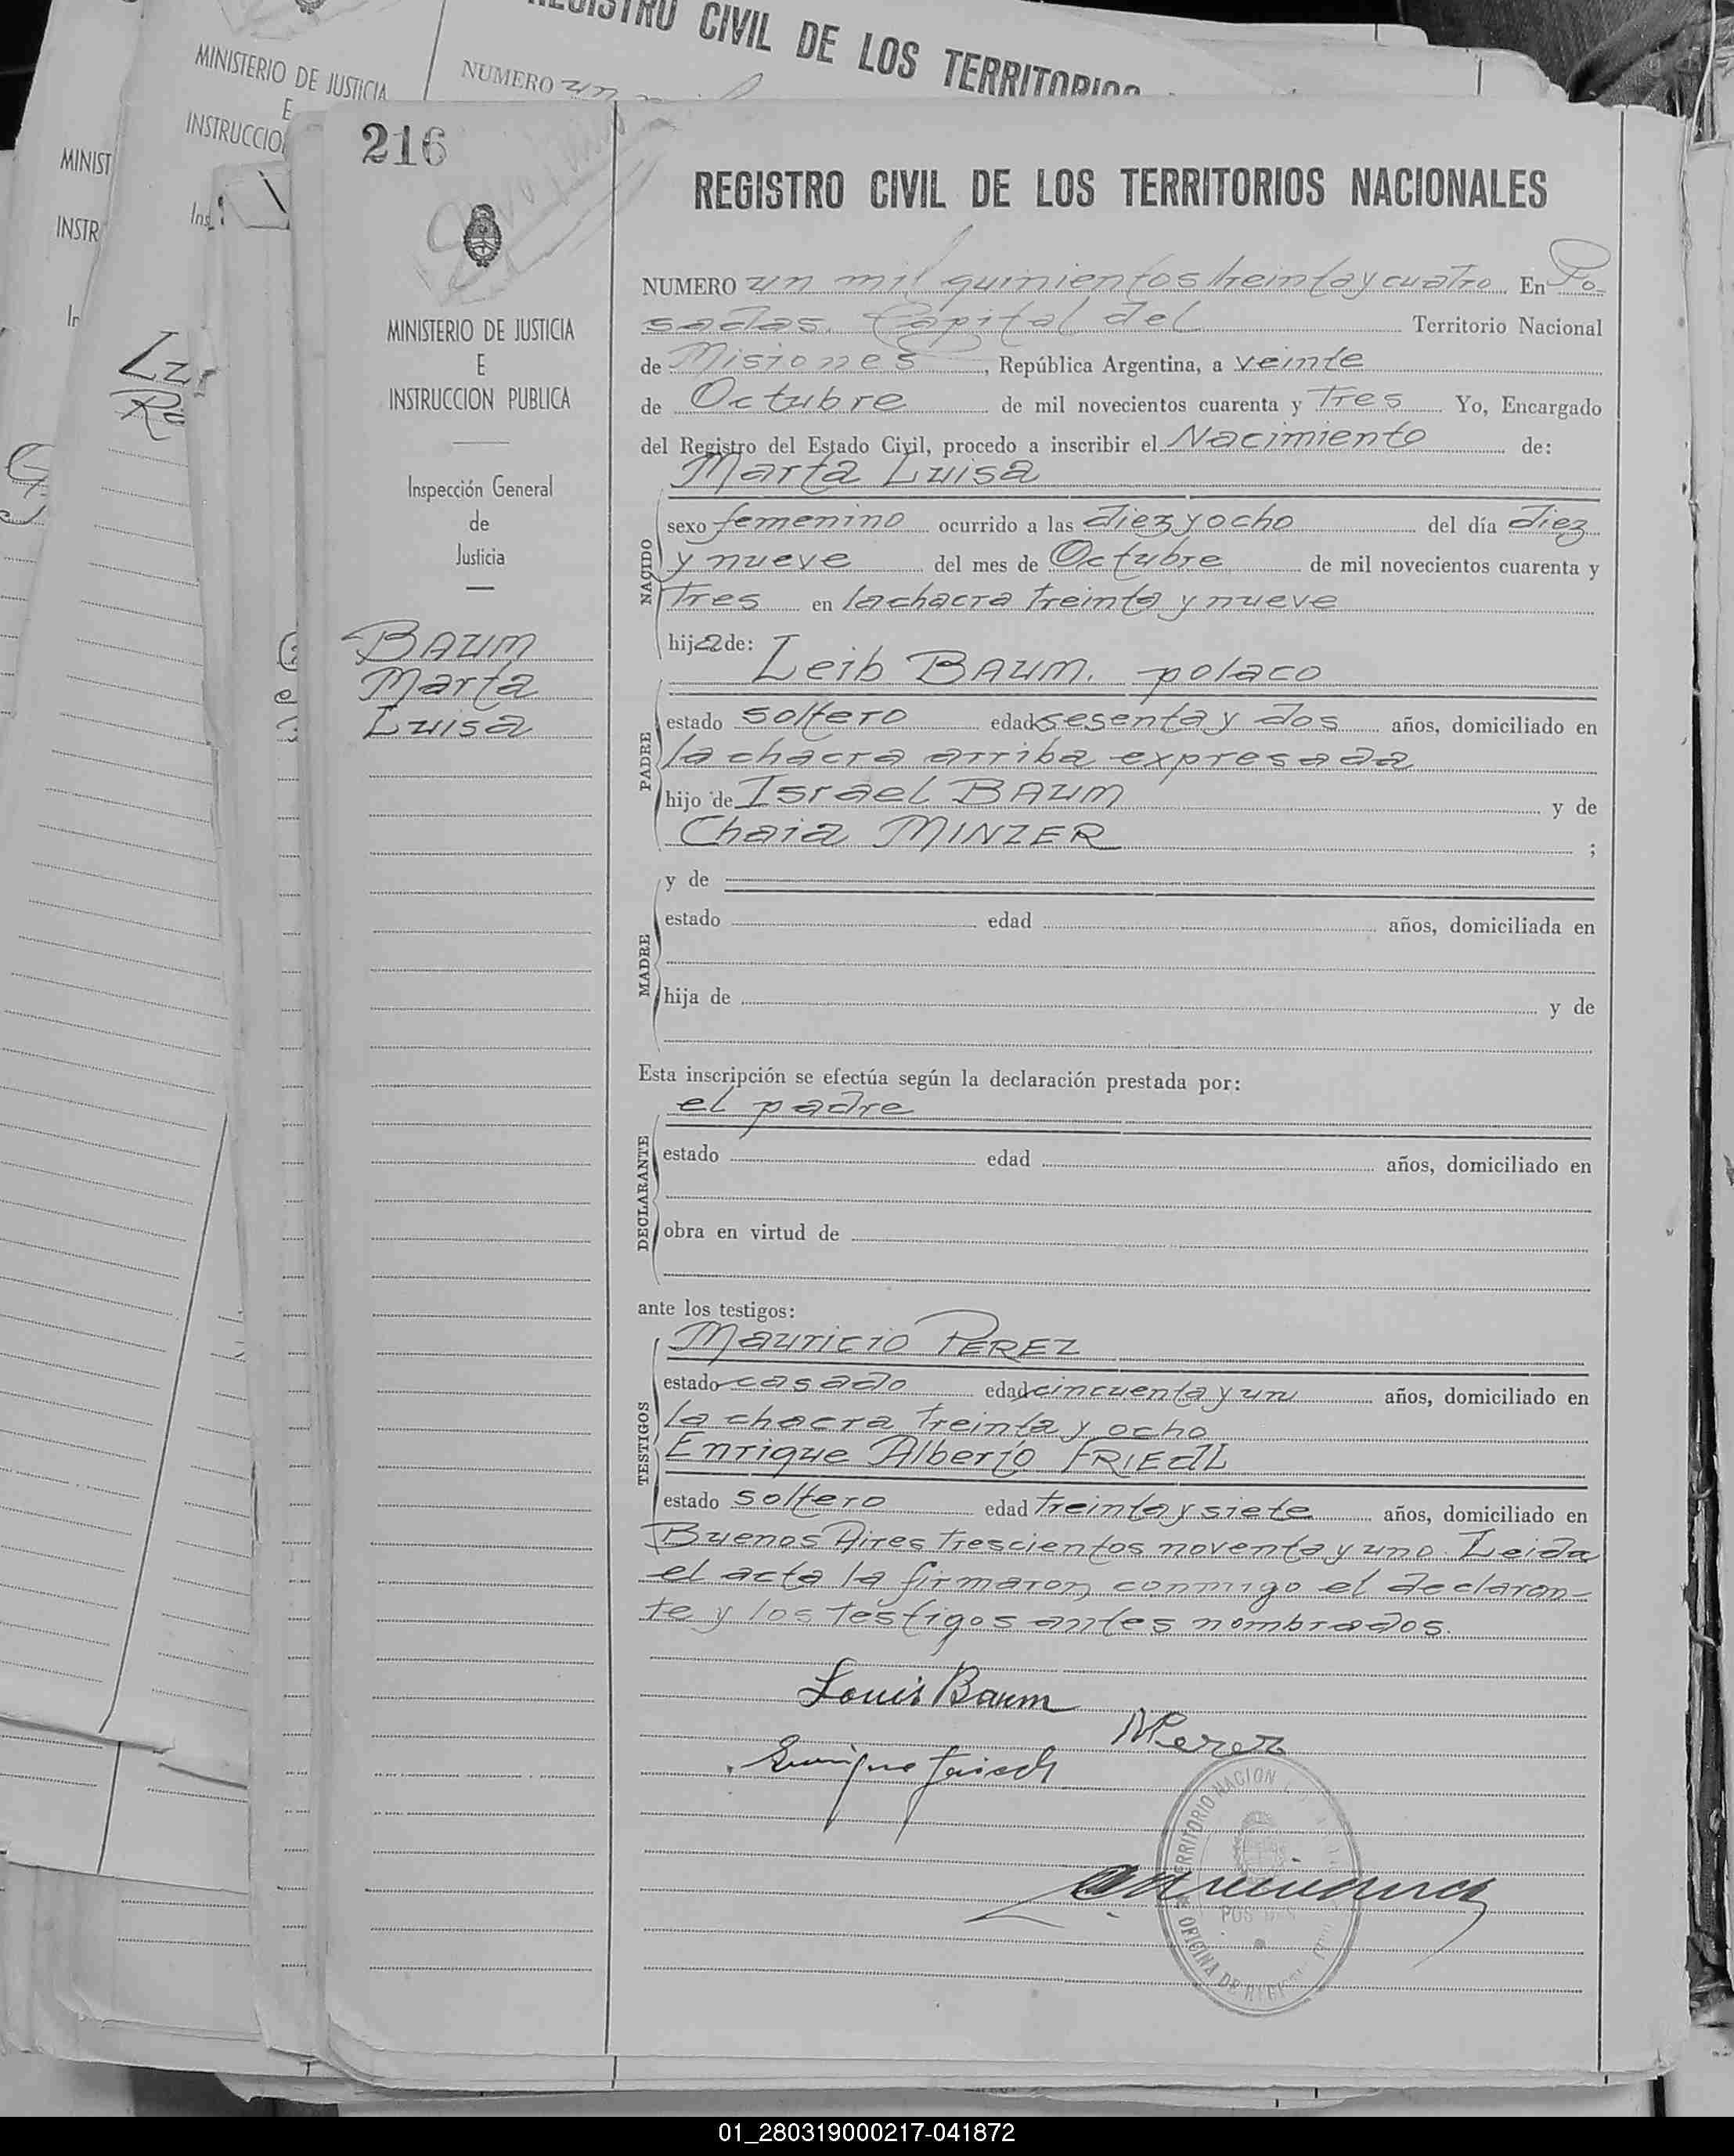 REGISTRO CIVIL DE LOS TERRITORIOS
MINISTERIO DE JUSTICIA
E
INSTRUCCIO
NUMERO un
MINIST
INSTR
In
Ins
216
MINISTERIO DE JUSTICIA
E
INSTRUCCION PUBLICA
Inspección General
de
Justicia
BAUM
Marta
Luisa
REGISTRO CIVIL DE LOS TERRITORIOS NACIONALES
NUMERO un mil quinientos treinta y cuatro En Po-
sadas. Capital del Territorio Nacional
de Misiones, República Argentina, a veinte
de Octubre de mil novecientos cuarenta y Tres Yo, Encargado
del Registro del Estado Civil, procedo a inscribir el Nacimiento de:
Marta Luisa
NACIDO
sexo femenino ocurrido a las diez y ocho del día diez
y nueve del mes de Octubre de mil novecientos cuarenta y
Tres en la chacra treinta y nueve
hija de:
Leib BAUM. polaco
PADRE
estado soltero edad sesenta y dos años, domiciliado en
la chacra arriba expresada
hijo de Israel BAUM y de
Chaia MINZER ;
MADRE
y de
estado edad años, domiciliada en
hija de y de
Esta inscripción se efectúa según la declaración prestada por:
el padre
DECLARANTE
estado edad años, domiciliado en
obra en virtud de
ante los testigos:
Mauricio PEREZ
TESTIGOS
estado casado edad cincuenta y un años, domiciliado en
la chacra Treinta y ocho
Enrique Alberto FRIEdL
estado soltero edad treinta y siete años, domiciliado en
Buenos Aires Trescientos noventa y uno. Leida
el acta la firmaron conmigo el declaran-
te y los testigos antes nombrados.
Louis Baum
MPerez
Enrique Friedl
TERRITORIO NACION
POSADAS
OFICINA DE
01_280319000217-041872